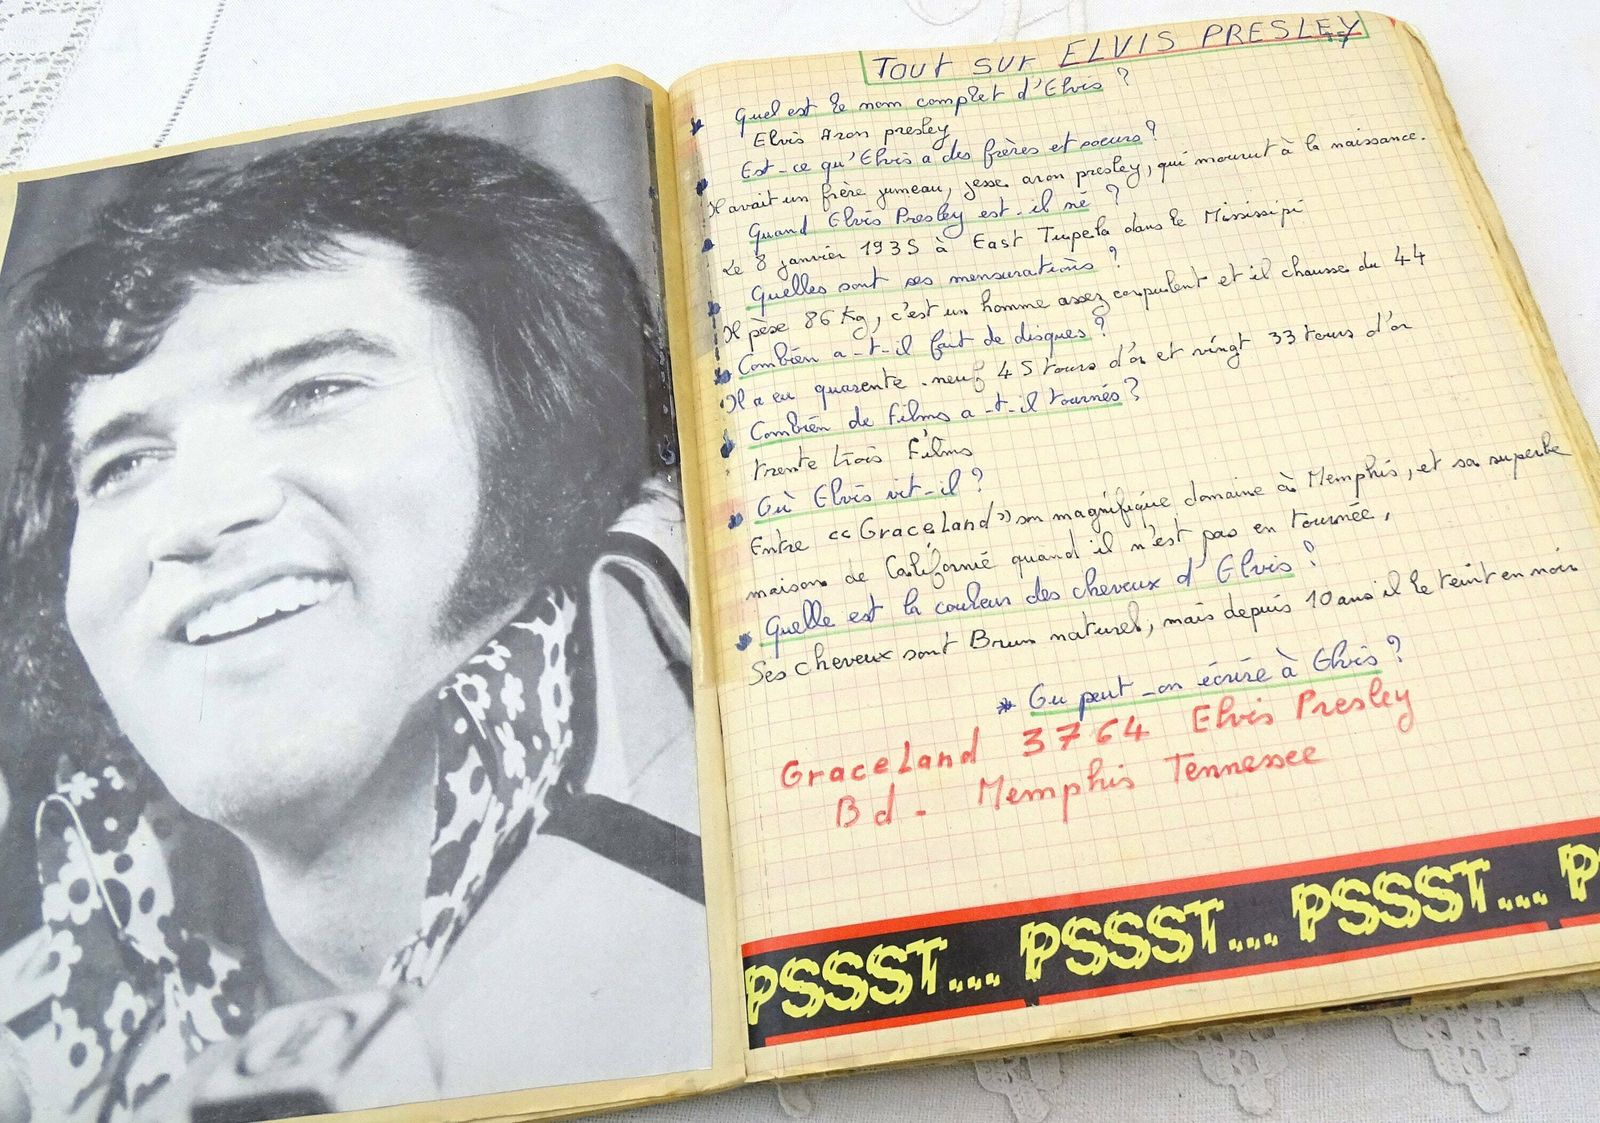 Tout sur ELVIS PRESLEY
Quel est le nom complet d'Elvis ?
Elvis Aron presley
Est-ce qu'Elvis a des frères et soeurs ?
Il avait un frère jumeau, jesse aron presley, qui mourut à la naissance.
Quand Elvis Presley est-il né ?
Le 8 janvier 1935 à East Tupela dans le Mississipi
Quelles sont ses mensurations ?
Il pèse 86 Kg, c'est un homme assez corpulent et il chausse du 44
Combien a-t-il fait de disques ?
Il a eu quarente-neuf 45 tours d'or et vingt 33 tours d'or
Combien de Films a-t-il tournés ?
trente trois Films
Où Elvis vit-il ?
Entre «GraceLand» son magnifique domaine à Memphis, et sa superbe
maison de Californie quand il n'est pas en tournée,
Quelle est la couleur des cheveux d'Elvis ?
Ses cheveux sont Brun naturel, mais depuis 10 ans il le teint en noir
* Ou peut-on écrire à Elvis ?
GraceLand 3764 Elvis Presley
Bd - Memphis Tennessee
PSSST.... PSSST.... PSSST.... P